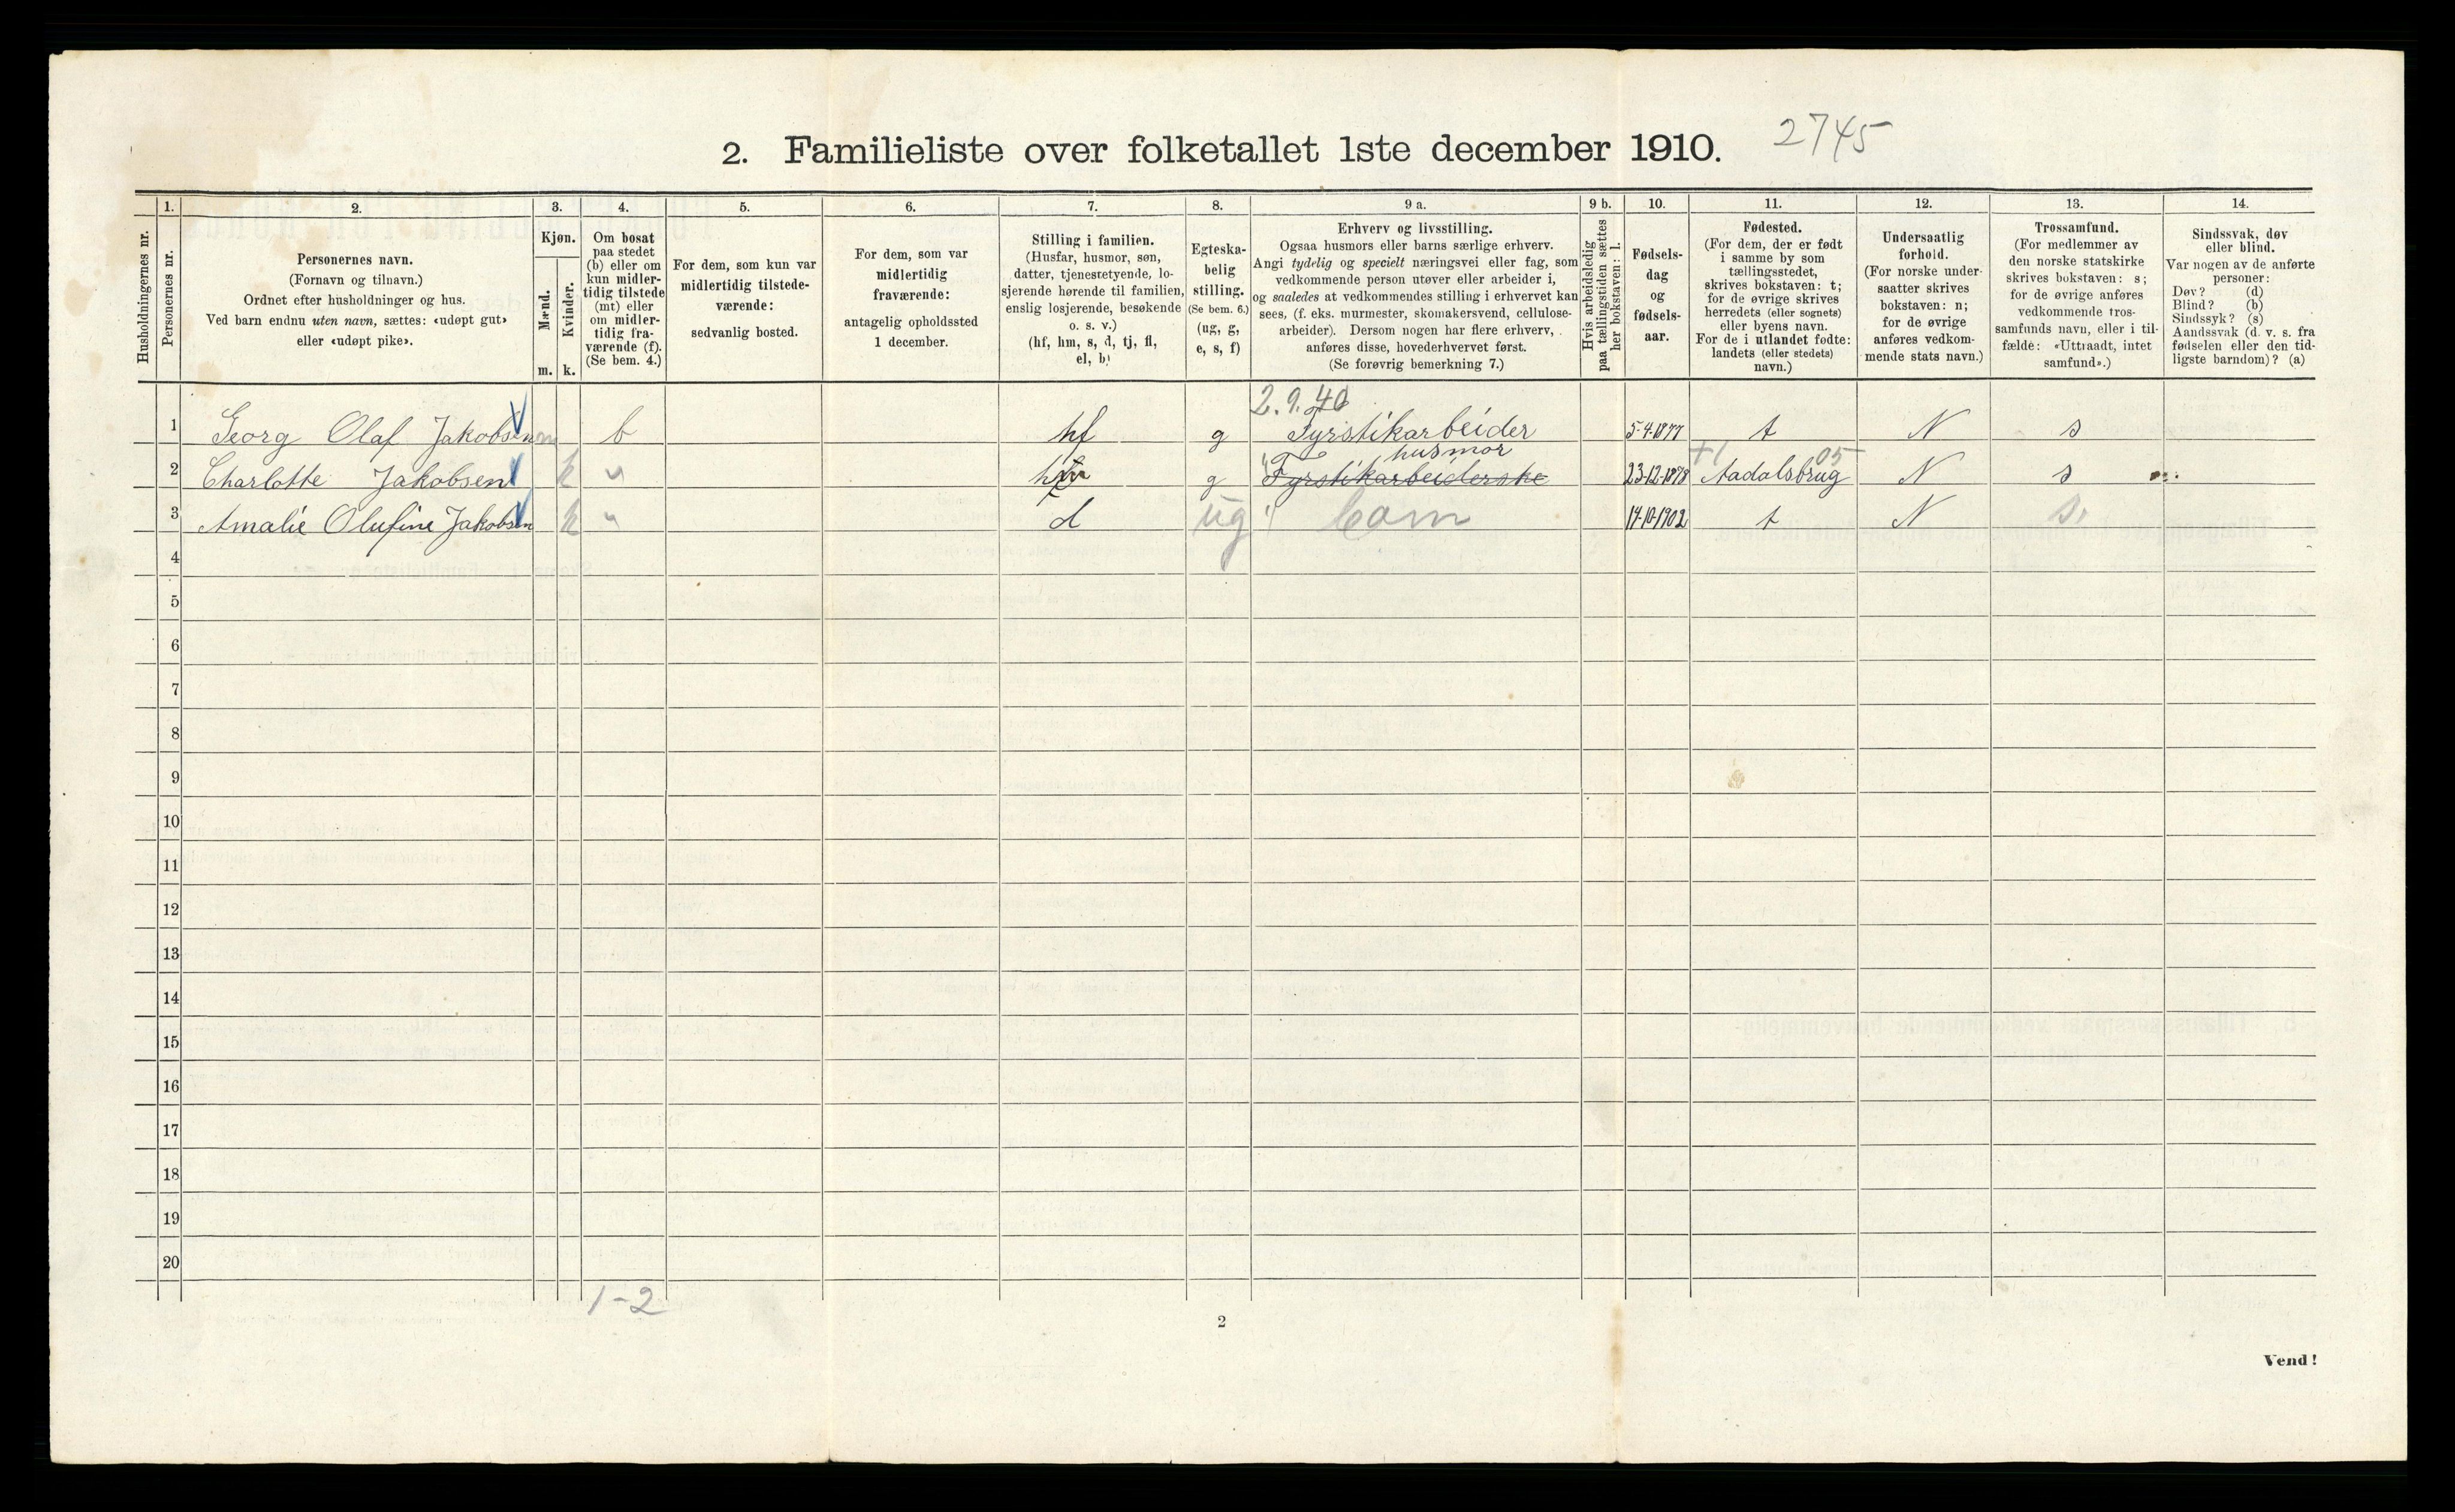 2. Familieliste over folketallet 1ste december 1910. 2745
Husholdningernes nr.
1.
Personernes nr.
2.
Personernes navn.
(Fornavn og tilnavn.)
Ordnet efter husholdninger og hus.
Ved barn endnu uten navn, sættes: «udøpt gut»
eller «udøpt pike».
3.
Kjøn.
Mænd.
Kvinder.
m. k.
4.
Om bosat
paa stedet
(b) eller om
kun midler-
tidig tilstede
(mt) eller
om midler-
tidig fra-
værende (f).
(Se bem. 4.)
5.
For dem, som kun var
midlertidig tilstede-
værende:
sedvanlig bosted.
6.
For dem, som var
midlertidig
fraværende:
antagelig opholdssted
1 december.
7.
Stilling i familien.
(Husfar, husmor, søn,
datter, tjenestetyende, lo-
sjerende hørende til familien,
enslig losjerende, besøkende
o. s. v.)
(hf, hm, s, d, tj, fl,
el, b)
8.
Egteska-
belig
stilling.
(Se bem. 6.)
(ug, g,
e, s, f)
9 a.
Erhverv og livsstilling.
Ogsaa husmors eller barns særlige erhverv.
Angi tydelig og specielt næringsvei eller fag, som
vedkommende person utøver eller arbeider i,
og saaledes at vedkommendes stilling i erhvervet kan
sees, (f. eks. murmester, skomakersvend, cellulose-
arbeider). Dersom nogen har flere erhverv,
anføres disse, hovederhvervet først.
(Se forøvrig bemerkning 7.)
9 b.
Hvis arbeidsledig
paa tællingstiden sættes
her bokstaven: l.
10.
Fødsels-
dag
og
fødsels-
aar.
11.
Fødested.
(For dem, der er født
i samme by som
tællingsstedet,
skrives bokstaven: t;
for de øvrige skrives
herredets (eller sognets)
eller byens navn.
For de i utlandet fødte:
landets (eller stedets)
navn.)
12.
Undersaatlig
forhold.
(For norske under-
saatter skrives
bokstaven: n;
for de øvrige
anføres vedkom-
mende stats navn.)
13.
Trossamfund.
(For medlemmer av
den norske statskirke
skrives bokstaven: s;
for de øvrige anføres
vedkommende tros-
samfunds navn, eller i til-
fælde: «Uttraadt, intet
samfund».)
14.
Sindssvak, døv
eller blind.
Var nogen av de anførte
personer:
Døv? (d)
Blind? (b)
Sindssyk? (s)
Aandssvak (d. v. s. fra
fødselen eller den tid-
ligste barndom)? (a)
2.9.40
1 Georg Olaf Jakobsen m b hf g Fyrstikarbeider 5-4-1877 t N s
husmor
+1 05
2 Charlotte Jakobsen k " hm g Fyrstikarbeiderske 23-12-1878 Aadalsbrug N s
3 Amalie Olufine Jakobsen k " d ug barn 14-10-1902 t N s
4
5
6
7
8
9
10
11
12
13
14
15
16
17
18
19
20
1-2
2
Vend!